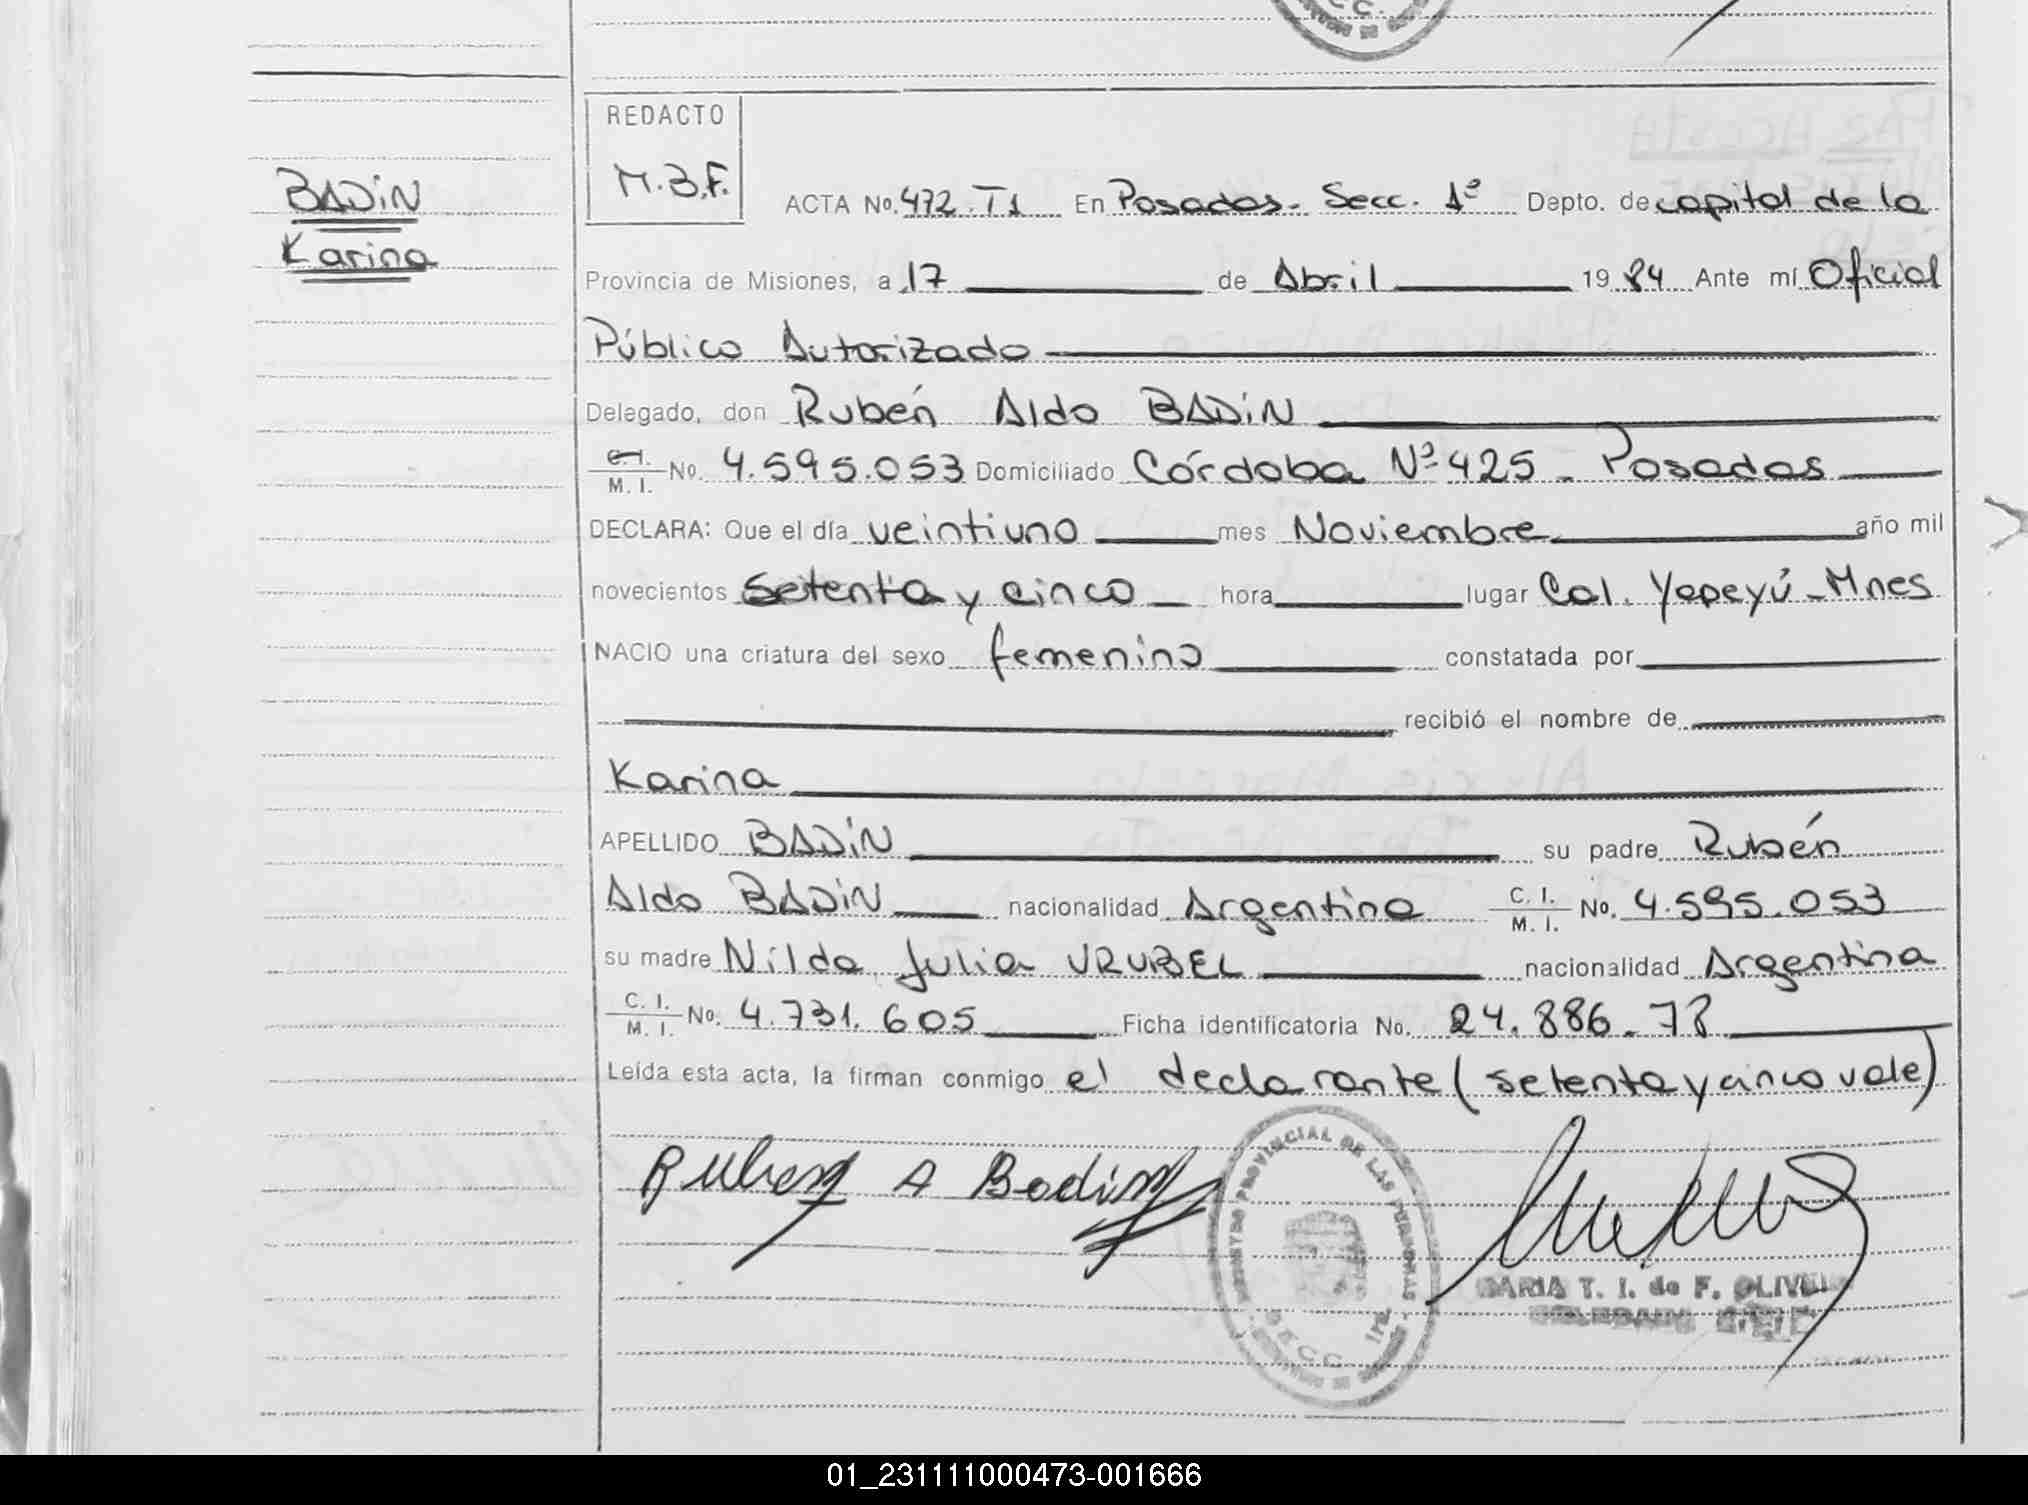 REDACTO
M.B.F.
BADiN
Karina
ACTA No. 472-T1 En Posadas- Secc. 1ª Depto. de capital de la
Provincia de Misiones, a 17 de Abril 1984 Ante mí Oficial
Público Autorizado
Delegado, don Rubén Aldo BADiN
C.I. M.I. No. 4.595.053 Domiciliado Córdoba Nº 425 - Posadas
DECLARA: Que el día veintiuno mes Noviembre año mil
novecientos setenta y cinco hora lugar Col. Yapeyú-Mnes
NACIO una criatura del sexo femenino constatada por
recibió el nombre de
Karina
APELLIDO BADiN su padre Rubén
Aldo BADiN nacionalidad Argentina C.I. M.I. No. 4.595.053
su madre Nilda Julia URUBEL nacionalidad Argentina
C.I. M.I. No. 4.731.605 Ficha identificatoria No. 24.886.78
Leída esta acta, la firman conmigo el declarante (setenta y cinco vale)
Ruben A Badin
PROVINCIAL DE LAS PERSONAS
T. I. de F.
01_231111000473-001666